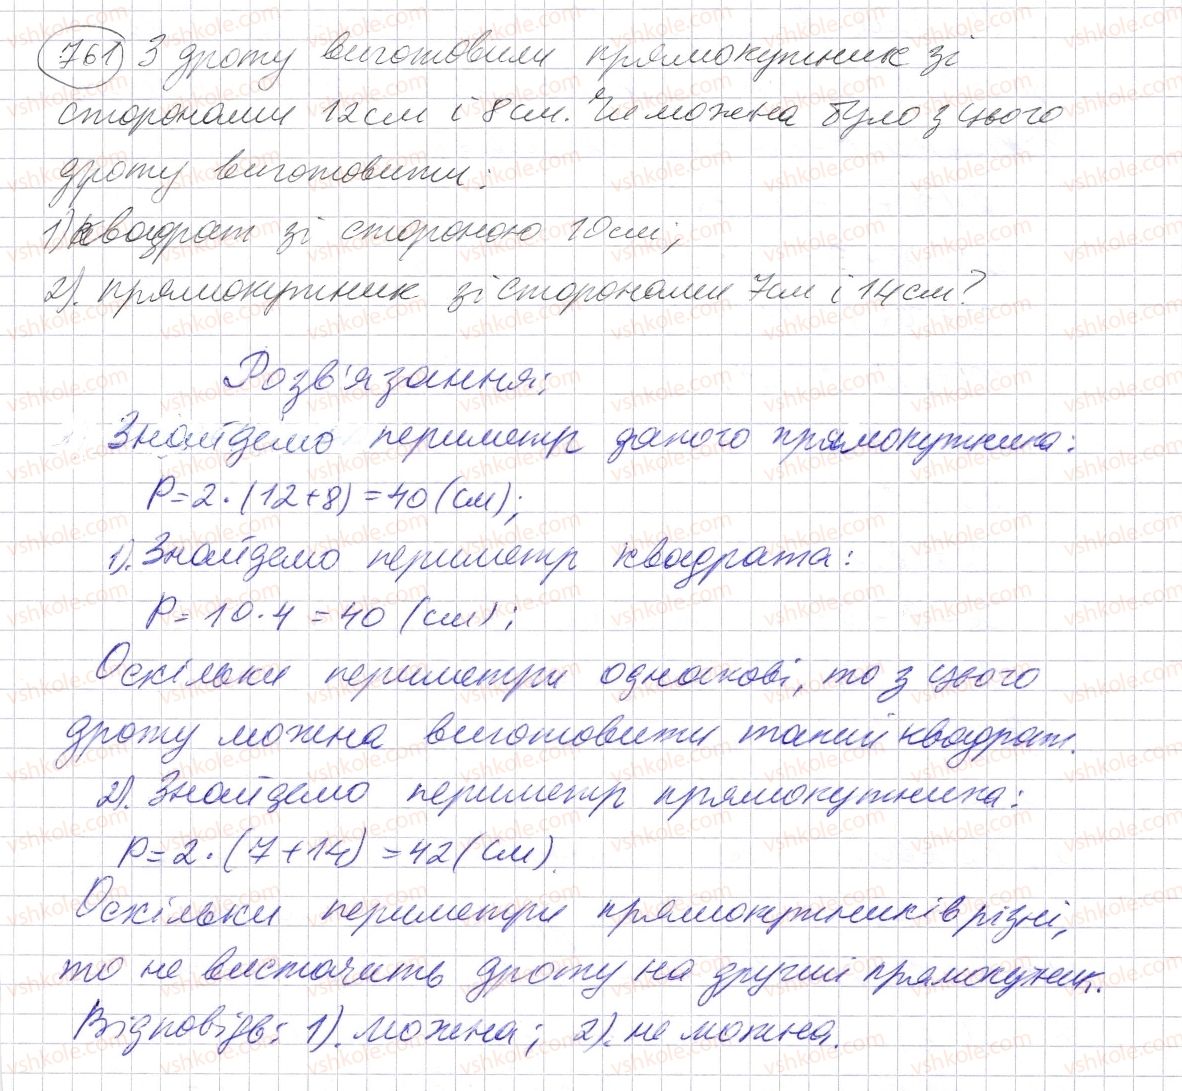 761 З дроту виготовили прямокутник зі
сторонами 12см і 8см. Чи можна було з цього
дроту виготовити:
1) квадрат зі стороною 10см;
2). прямокутник зі сторонами 7см і 14см?
Розв'язання:
Знайдемо периметр даного прямокутника:
P=2·(12+8)=40(см);
1). Знайдемо периметр квадрата:
P=10·4=40 (см);
Оскільки периметри однакові, то з цього
дроту можна виготовити такий квадрат.
2). Знайдемо периметр прямокутника:
P=2·(7+14)=42(см).
Оскільки периметри прямокутників різні,
то не вистачить дроту на другий прямокутник.
Відповідь: 1). можна; 2). не можна.
vshkole.com